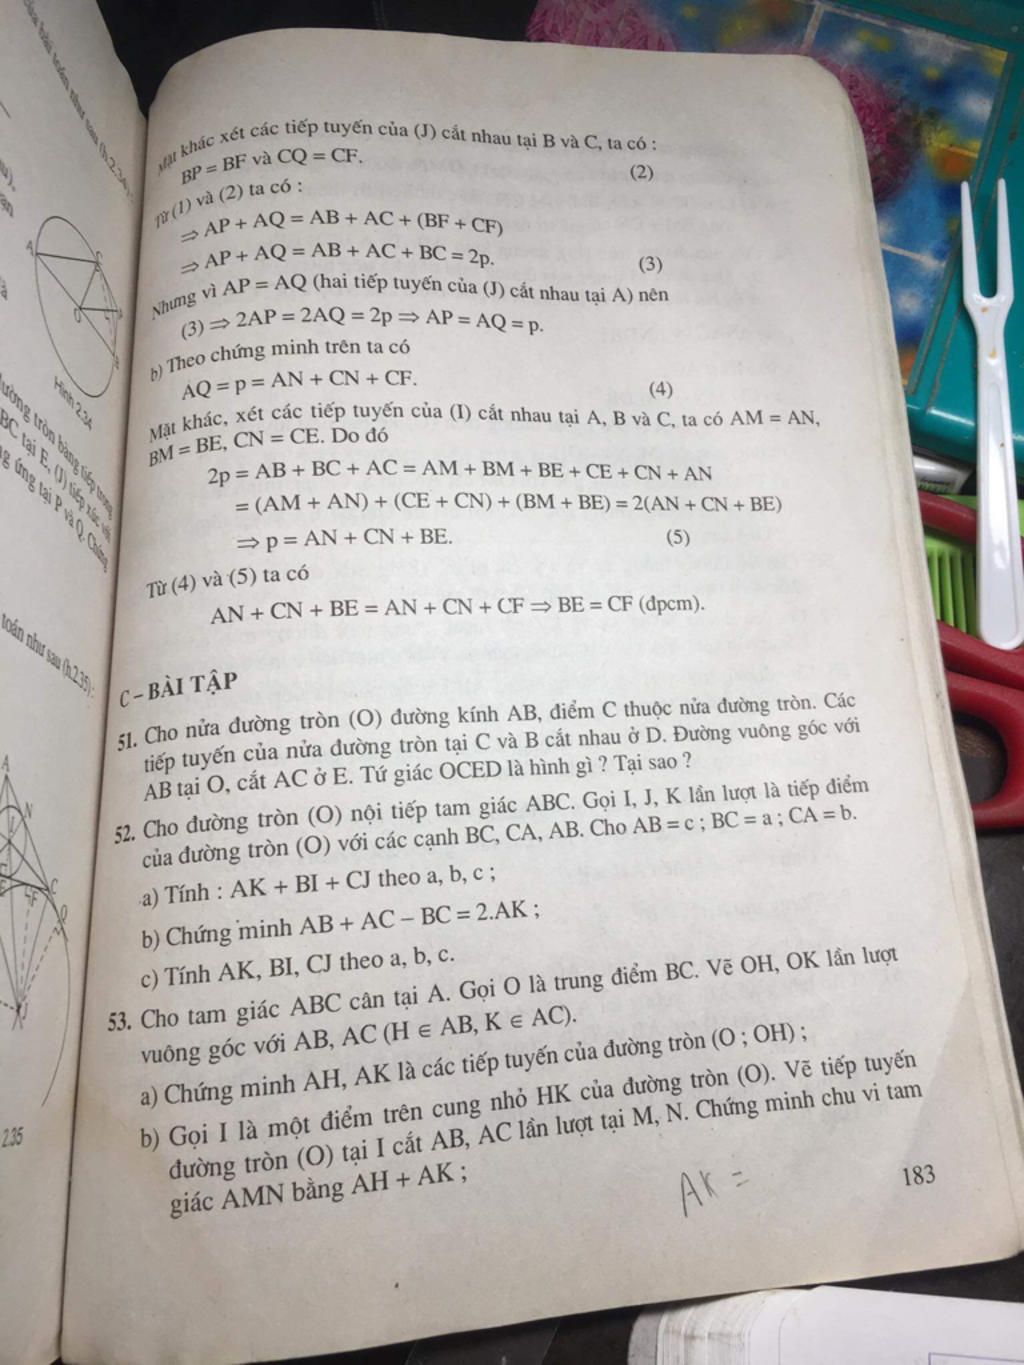 Mặt khác xét các tiếp tuyến của (J) cắt nhau tại B và C, ta có :
BP = BF và CQ = CF. (2)
Từ (1) và (2) ta có :
⇒ AP + AQ = AB + AC + (BF + CF)
⇒ AP + AQ = AB + AC + BC = 2p. (3)
Nhưng vì AP = AQ (hai tiếp tuyến của (J) cắt nhau tại A) nên
(3) ⇒ 2AP = 2AQ = 2p ⇒ AP = AQ = p.
b) Theo chứng minh trên ta có
AQ = p = AN + CN + CF. (4)
Mặt khác, xét các tiếp tuyến của (I) cắt nhau tại A, B và C, ta có AM = AN,
BM = BE, CN = CE. Do đó
2p = AB + BC + AC = AM + BM + BE + CE + CN + AN
= (AM + AN) + (CE + CN) + (BM + BE) = 2(AN + CN + BE)
⇒ p = AN + CN + BE. (5)
Từ (4) và (5) ta có
AN + CN + BE = AN + CN + CF ⇒ BE = CF (đpcm).
C – BÀI TẬP
51. Cho nửa đường tròn (O) đường kính AB, điểm C thuộc nửa đường tròn. Các
tiếp tuyến của nửa đường tròn tại C và B cắt nhau ở D. Đường vuông góc với
AB tại O, cắt AC ở E. Tứ giác OCED là hình gì ? Tại sao ?
52. Cho đường tròn (O) nội tiếp tam giác ABC. Gọi I, J, K lần lượt là tiếp điểm
của đường tròn (O) với các cạnh BC, CA, AB. Cho AB = c ; BC = a ; CA = b.
a) Tính : AK + BI + CJ theo a, b, c ;
b) Chứng minh AB + AC – BC = 2.AK ;
c) Tính AK, BI, CJ theo a, b, c.
53. Cho tam giác ABC cân tại A. Gọi O là trung điểm BC. Vẽ OH, OK lần lượt
vuông góc với AB, AC (H ∈ AB, K ∈ AC).
a) Chứng minh AH, AK là các tiếp tuyến của đường tròn (O ; OH) ;
b) Gọi I là một điểm trên cung nhỏ HK của đường tròn (O). Vẽ tiếp tuyến
đường tròn (O) tại I cắt AB, AC lần lượt tại M, N. Chứng minh chu vi tam
giác AMN bằng AH + AK ;
AK =
183
Hình 2.34
đường tròn bàng tiếp trong
BC tại E, (J) tiếp xúc với
ứng tại P và Q. Chứng
toán như sau (h.2.35) :
2.35